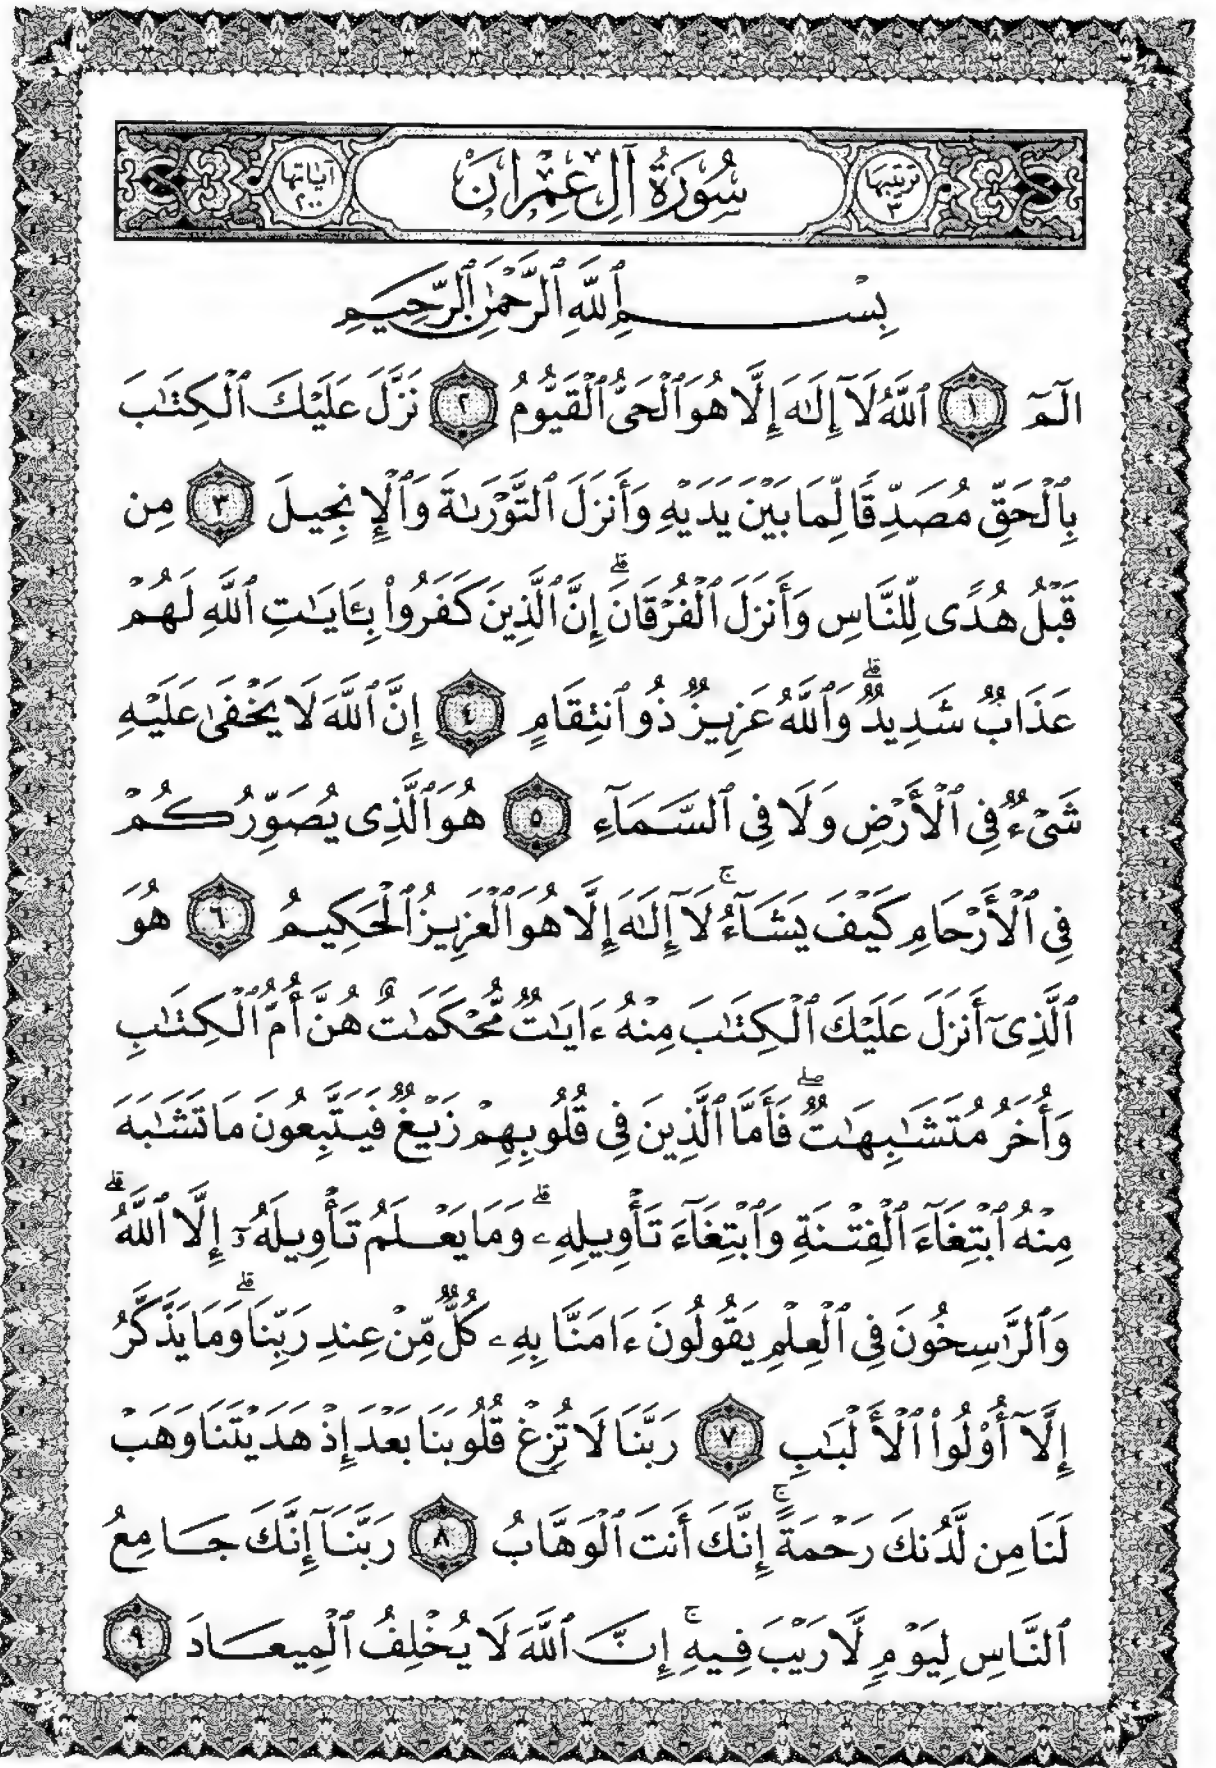 ترتيبها ٣
سُورَةُ آلِ عِمْرَانَ
آياتها ٢٠٠
بِسْمِ ٱللَّهِ ٱلرَّحْمَٰنِ ٱلرَّحِيمِ
الٓمٓ ١ ٱللَّهُ لَآ إِلَٰهَ إِلَّا هُوَ ٱلْحَىُّ ٱلْقَيُّومُ ٢ نَزَّلَ عَلَيْكَ ٱلْكِتَٰبَ
بِٱلْحَقِّ مُصَدِّقًا لِّمَا بَيْنَ يَدَيْهِ وَأَنزَلَ ٱلتَّوْرَىٰةَ وَٱلْإِنجِيلَ ٣ مِن
قَبْلُ هُدًى لِّلنَّاسِ وَأَنزَلَ ٱلْفُرْقَانَ ۗ إِنَّ ٱلَّذِينَ كَفَرُوا۟ بِـَٔايَٰتِ ٱللَّهِ لَهُمْ
عَذَابٌ شَدِيدٌ ۗ وَٱللَّهُ عَزِيزٌ ذُو ٱنتِقَامٍ ٤ إِنَّ ٱللَّهَ لَا يَخْفَىٰ عَلَيْهِ
شَىْءٌ فِى ٱلْأَرْضِ وَلَا فِى ٱلسَّمَآءِ ٥ هُوَ ٱلَّذِى يُصَوِّرُكُمْ
فِى ٱلْأَرْحَامِ كَيْفَ يَشَآءُ ۚ لَآ إِلَٰهَ إِلَّا هُوَ ٱلْعَزِيزُ ٱلْحَكِيمُ ٦ هُوَ
ٱلَّذِىٓ أَنزَلَ عَلَيْكَ ٱلْكِتَٰبَ مِنْهُ ءَايَٰتٌ مُّحْكَمَٰتٌ هُنَّ أُمُّ ٱلْكِتَٰبِ
وَأُخَرُ مُتَشَٰبِهَٰتٌ ۖ فَأَمَّا ٱلَّذِينَ فِى قُلُوبِهِمْ زَيْغٌ فَيَتَّبِعُونَ مَا تَشَٰبَهَ
مِنْهُ ٱبْتِغَآءَ ٱلْفِتْنَةِ وَٱبْتِغَآءَ تَأْوِيلِهِۦ ۗ وَمَا يَعْلَمُ تَأْوِيلَهُۥٓ إِلَّا ٱللَّهُ ۗ
وَٱلرَّٰسِخُونَ فِى ٱلْعِلْمِ يَقُولُونَ ءَامَنَّا بِهِۦ كُلٌّ مِّنْ عِندِ رَبِّنَا ۗ وَمَا يَذَّكَّرُ
إِلَّآ أُو۟لُوا۟ ٱلْأَلْبَٰبِ ٧ رَبَّنَا لَا تُزِغْ قُلُوبَنَا بَعْدَ إِذْ هَدَيْتَنَا وَهَبْ
لَنَا مِن لَّدُنكَ رَحْمَةً ۚ إِنَّكَ أَنتَ ٱلْوَهَّابُ ٨ رَبَّنَآ إِنَّكَ جَامِعُ
ٱلنَّاسِ لِيَوْمٍ لَّا رَيْبَ فِيهِ ۚ إِنَّ ٱللَّهَ لَا يُخْلِفُ ٱلْمِيعَادَ ٩